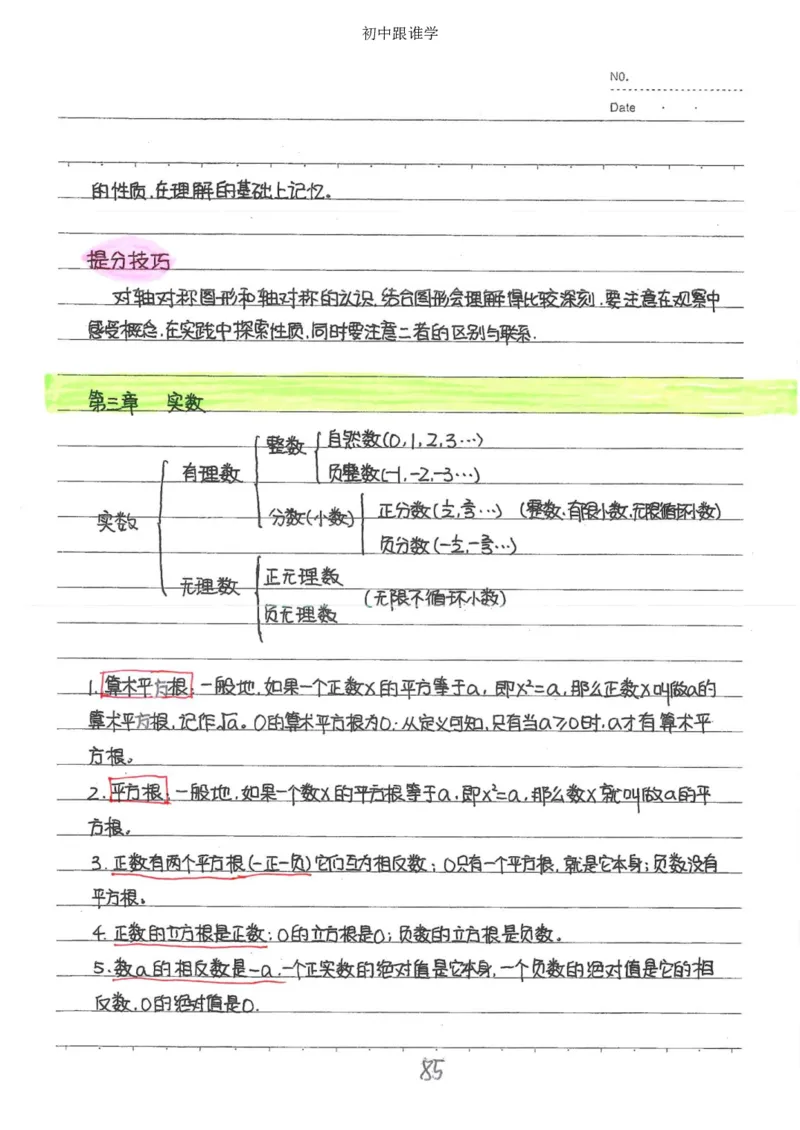 初中跟谁学
NO.
Date
的性质,在理解的基础上记忆。
提分技巧
对轴对称图形和轴对称的认识,结合图形会理解得比较深刻,要注意在观察中
感受概念,在实践中探索性质,同时要注意二者的区别与联系.
第三章 实数
实数
有理数
整数
自然数(0,1,2,3…)
负整数(-1,-2,-3…)
分数(小数)
正分数(1/2,2/3…) (整数、有限小数、无限循环小数)
负分数(-1/2,-2/3…)
无理数
正无理数
负无理数
(无限不循环小数)
1.算术平方根:一般地,如果一个正数x的平方等于a,即x²=a,那么正数x叫做a的
算术平方根,记作√a。0的算术平方根为0;从定义可知,只有当a≥0时,a才有算术平
方根。
2.平方根:一般地,如果一个数x的平方根等于a,即x²=a,那么数x就叫做a的平
方根。
3.正数有两个平方根(一正一负)它们互为相反数;0只有一个平方根,就是它本身;负数没有
平方根。
4.正数的立方根是正数;0的立方根是0;负数的立方根是负数。
5.数a的相反数是-a,一个正实数的绝对值是它本身,一个负数的绝对值是它的相
反数,0的绝对值是0.
85